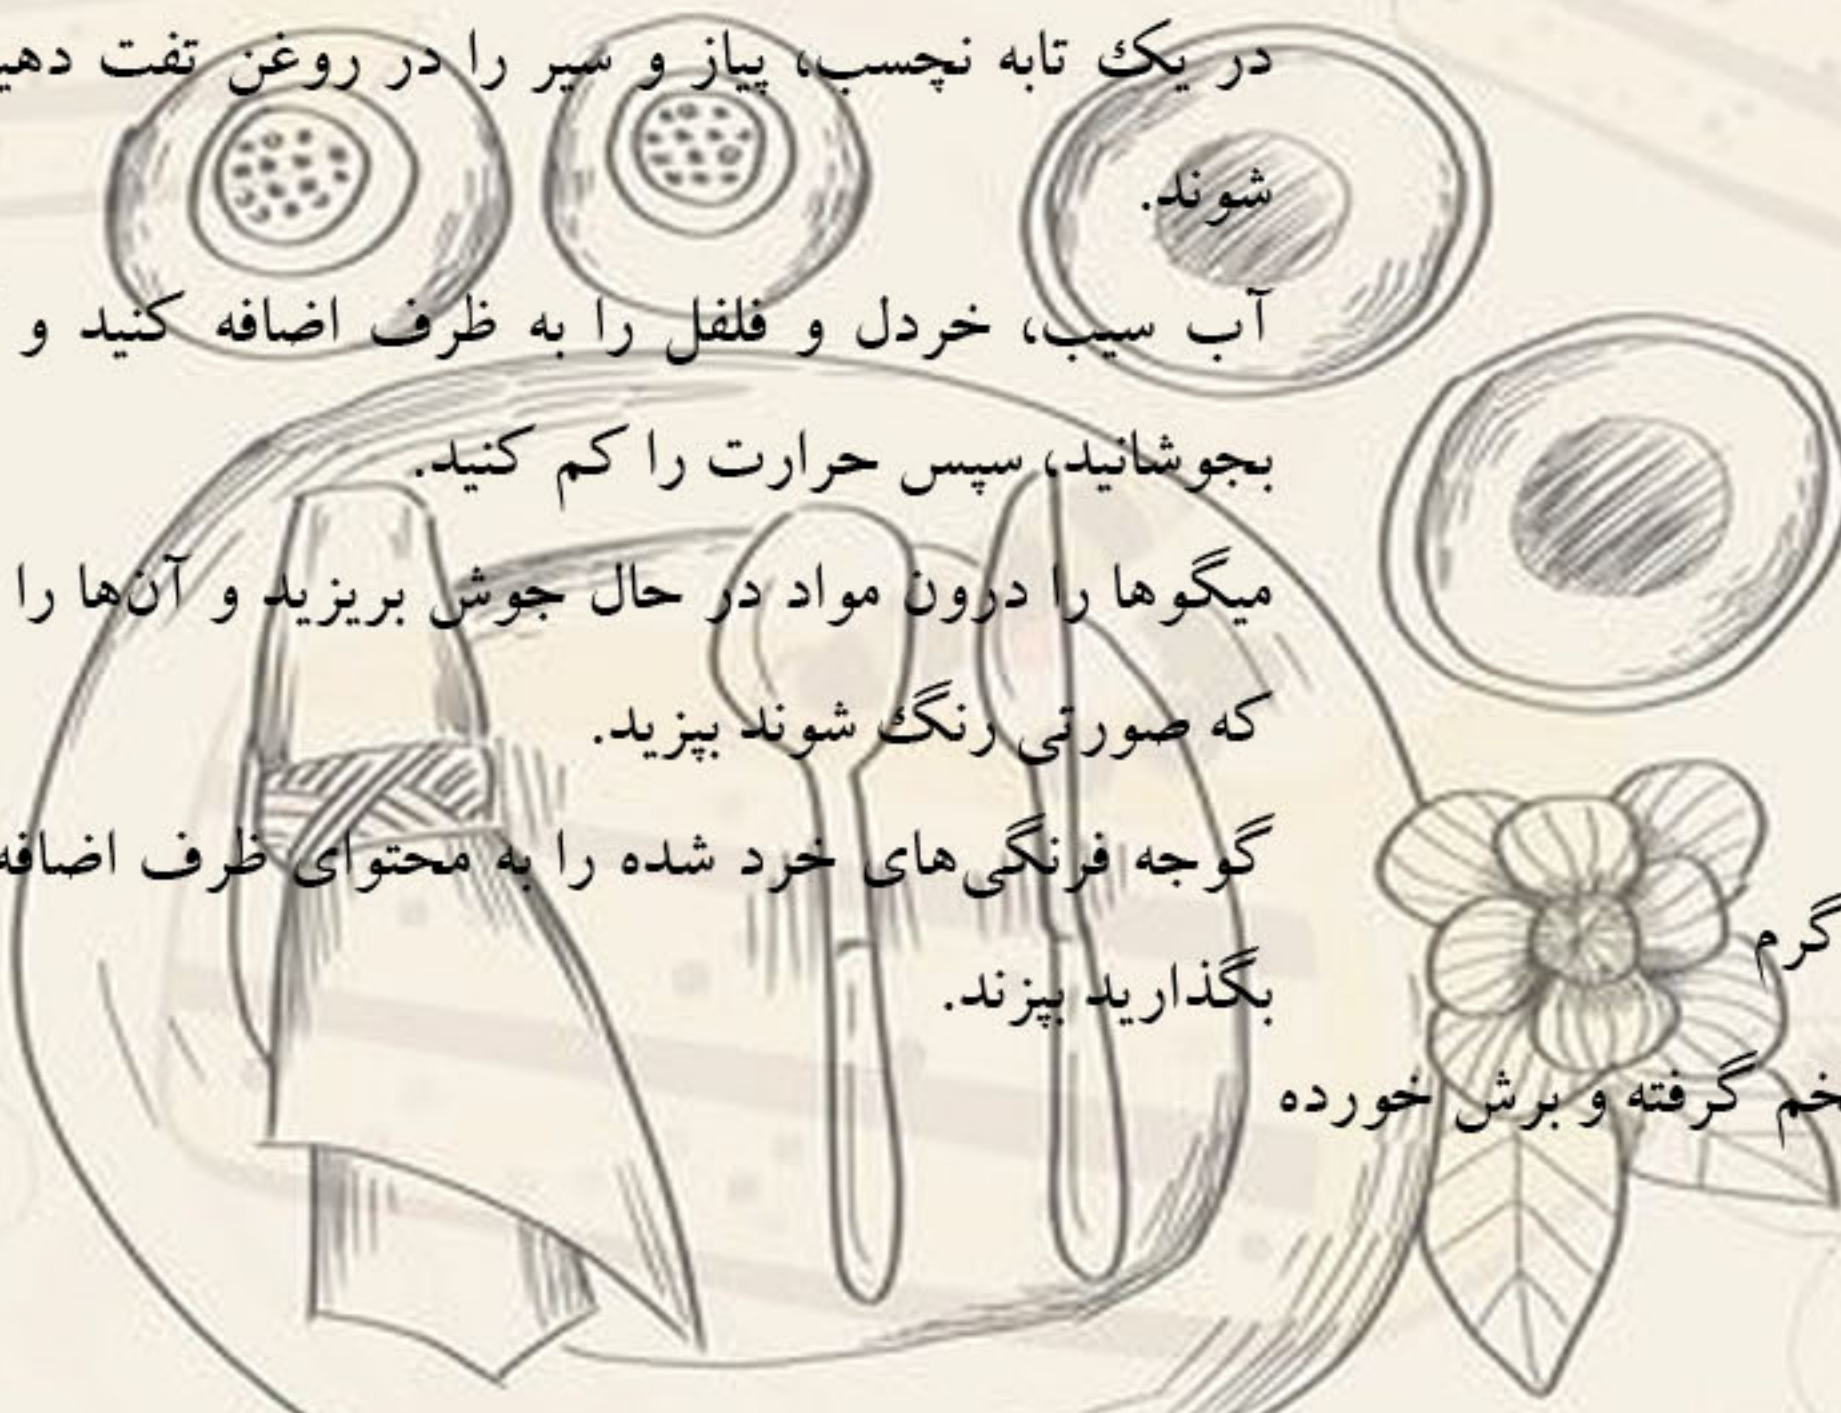 در یک تابه نچسب، پیاز و سیر را در روغن تفت
شوند.
آب سیب، خردل و فلفل را به ظرف اضافه کنید و
بجوشانید، سپس حرارت را کم کنید.
میگوها را درون مواد در حال جوش بریزید و آن‌ها را
که صورتی رنگ شوند بپزید.
گوجه فرنگی‌های خرد شده را به محتوای ظرف اضافه
بگذارید بپزند.
گرم
خم گرفته و برش خورده